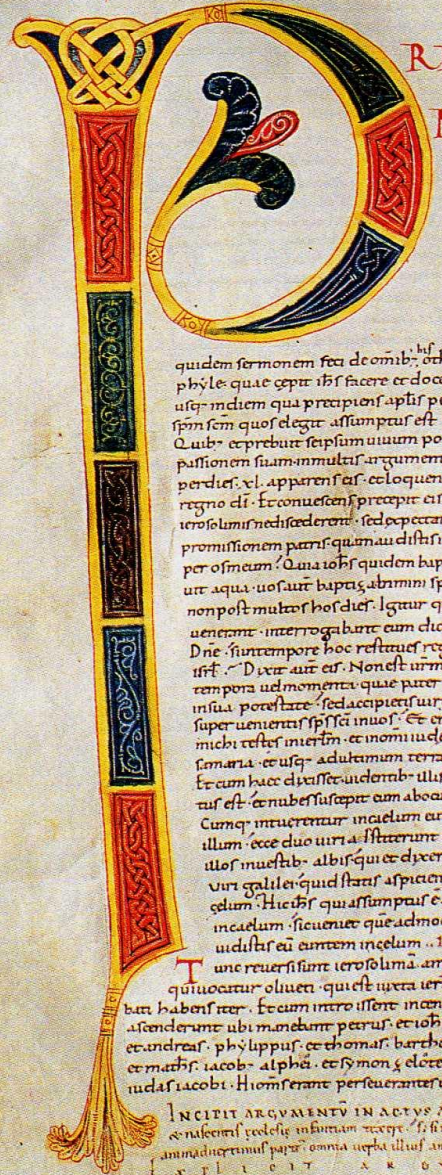 P R
quidem sermonem feci de omib; o his
phyle· quae cepit ihs facere et doc
usq; indiem qua precipiens aplis
spm scm quos elegit assumptus est
Quib; et prebuit seipsum uiuum po
passionem suam inmultis argumen
per dies .xl. apparens eis · et loquen
regno di · Et conuescens precepit eis
ierosolimis nediscederent · sed expecta
promissionem patris quam audistis
per os meum · Quia iohs quidem bap
uit aqua · uos aut baptizabimini sp
non post multos hos dies · Igitur q
uenerant · interrogabant eum dic
Dne · si in tempore hoc restitues reg
isrl · Dixit aut eis · Non est urm
tempora uel momenta quae pater
in sua potestate · sed accipietis uir
super uenientis sps sci in uos · Et er
michi testes in ierlm · et in omi iude
samaria · et usq; ad ultimum terra
Et cum haec dixisset · uidentib; illis
tus est · et nubes suscepit eum aboc
Cumq; intuerentur in caelum eu
illum · ecce duo uiri astiterunt
illos in uestib; albis qui et dixer
uiri galilei quid statis aspicien
celum · Hic ihs qui assumptus e
in caelum · sic ueniet que admo
uidistis eu euntem in celum ·
Tunc reuersi sunt ierosolima · a
qui uocatur oliueti · qui est iuxta ier
bati habens iter · Et cum intro issent incen
ascenderunt ubi manebant petrus · et ioh
et andreas · phylippus · et thomas · barth
et maths · iacob; alphei · et symon zelote
iudas iacobi · Hi oms erant perseuerantes
INCIPIT ARGVMENTV IN ACTVS A
nascentis ecclesie infantiam
animaduertimus omnia uerba illius
EXPLICIT